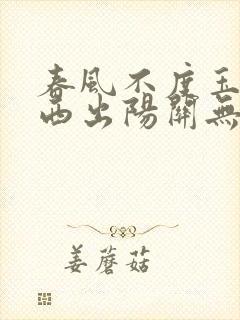 春風不度玉
西出陽關無
姜蘑菇